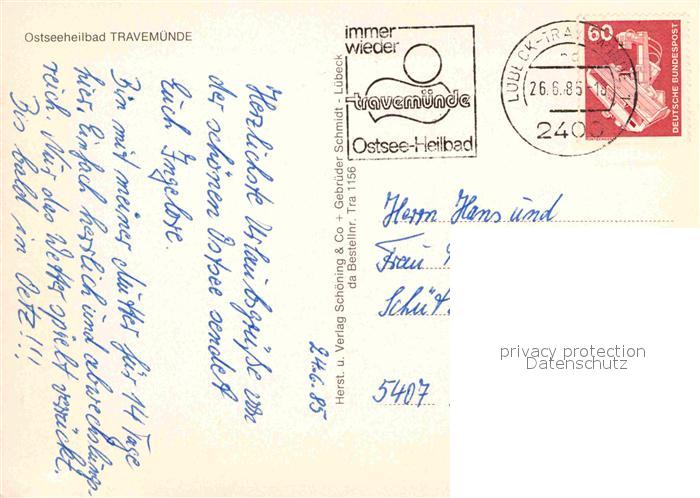 Ostseeheilbad TRAVEMÜNDE
immer
wieder
travemünde
Ostsee-Heilbad
LÜBECK-TRAVEMÜNDE 1
26.6.85-18
2400
60
DEUTSCHE BUNDESPOST
24.6.85
Herzlichste Urlaubsgrüße von
der schönen Ostsee sendet
Euch Ingelore.
Bin mit meiner Mutter für 14 Tage
hier. Einfach herrlich und abwechslungs-
reich. Nur das Wetter spielt verrückt.
Bis bald in Oetz!!!
Herst. u. Verlag Schöning & Co + Gebrüder Schmidt - Lübeck
da Bestellnr. Tra 1156
Herrn Hans und
Frau
Schüt
5407
privacy protection
Datenschutz